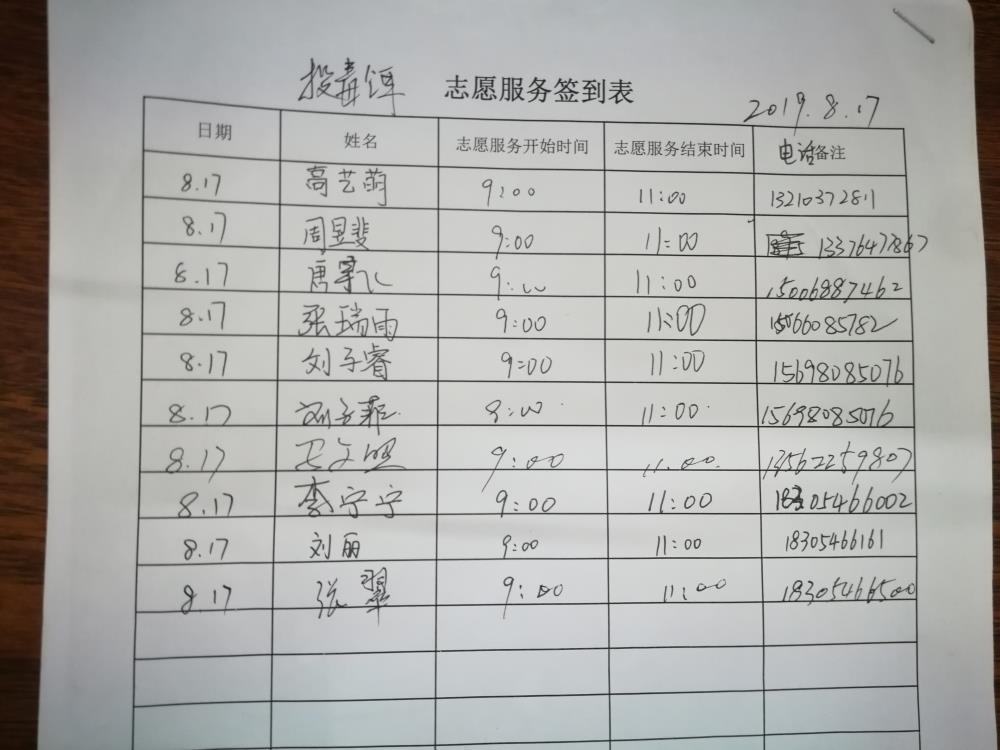 投毒饵 志愿服务签到表
2019.8.17
日期 姓名 志愿服务开始时间 志愿服务结束时间 电话备注
8.17 高艺萌 9:00 11:00 13210372811
8.17 周昱斐 9:00 11:00 13376477867
8.17 唐 9:00 11:00 15006887462
8.17 张瑞雨 9:00 11:00 15066085782
8.17 刘子睿 9:00 11:00 15698085076
8.17 刘子菲 9:00 11:00 15698085076
8.17 9:00 11:00 13562259807
8.17 李宁宁 9:00 11:00 18305466002
8.17 刘丽 9:00 11:00 18305466161
8.17 张翠 9:00 11:00 18305466500